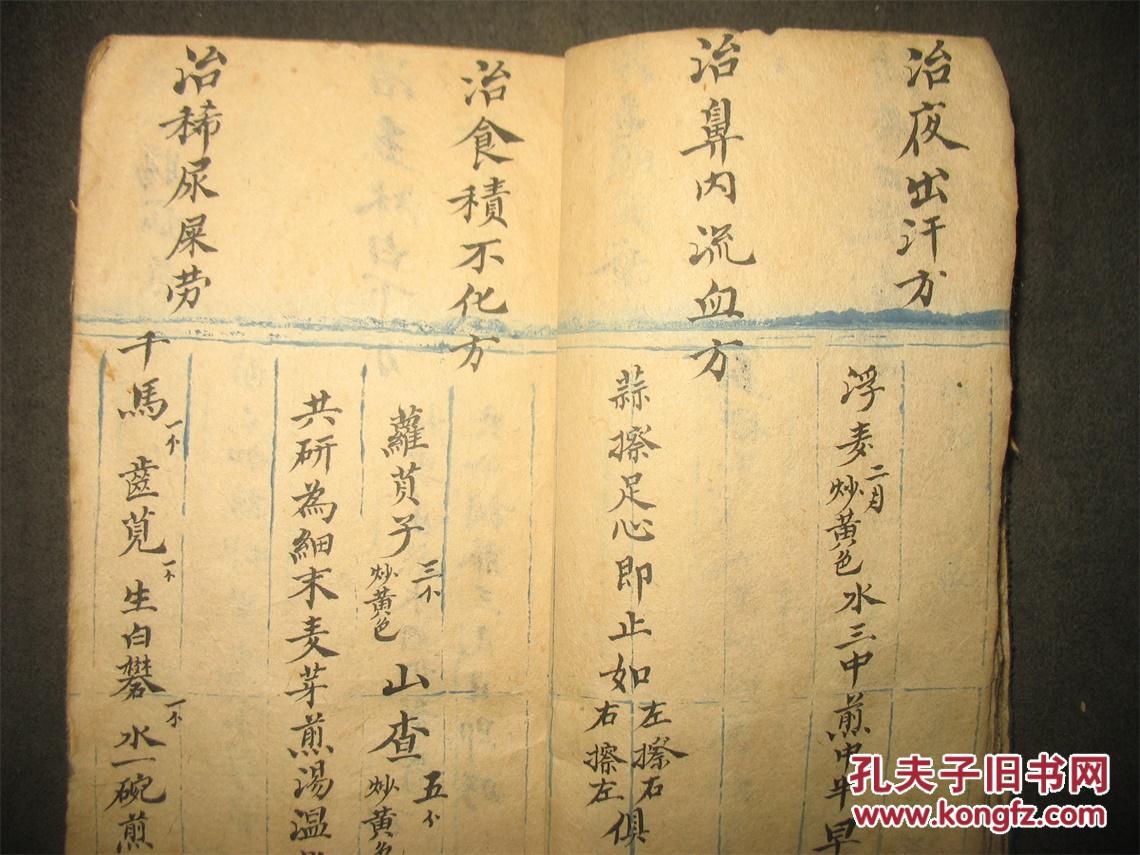 治夜出汗方
浮麦二月炒黄色水三中煎中半早
治鼻内流血方
蒜擦足心即止如左擦右右擦左俱
治食積不化方
蘿莄子三个炒黃色山查五个炒黃色
共研為細末麦芽煎湯温
治稀尿屎劳
千馬一个齒莧一个生白礬一个水一碗煎
孔夫子旧书网
www.kongfz.com